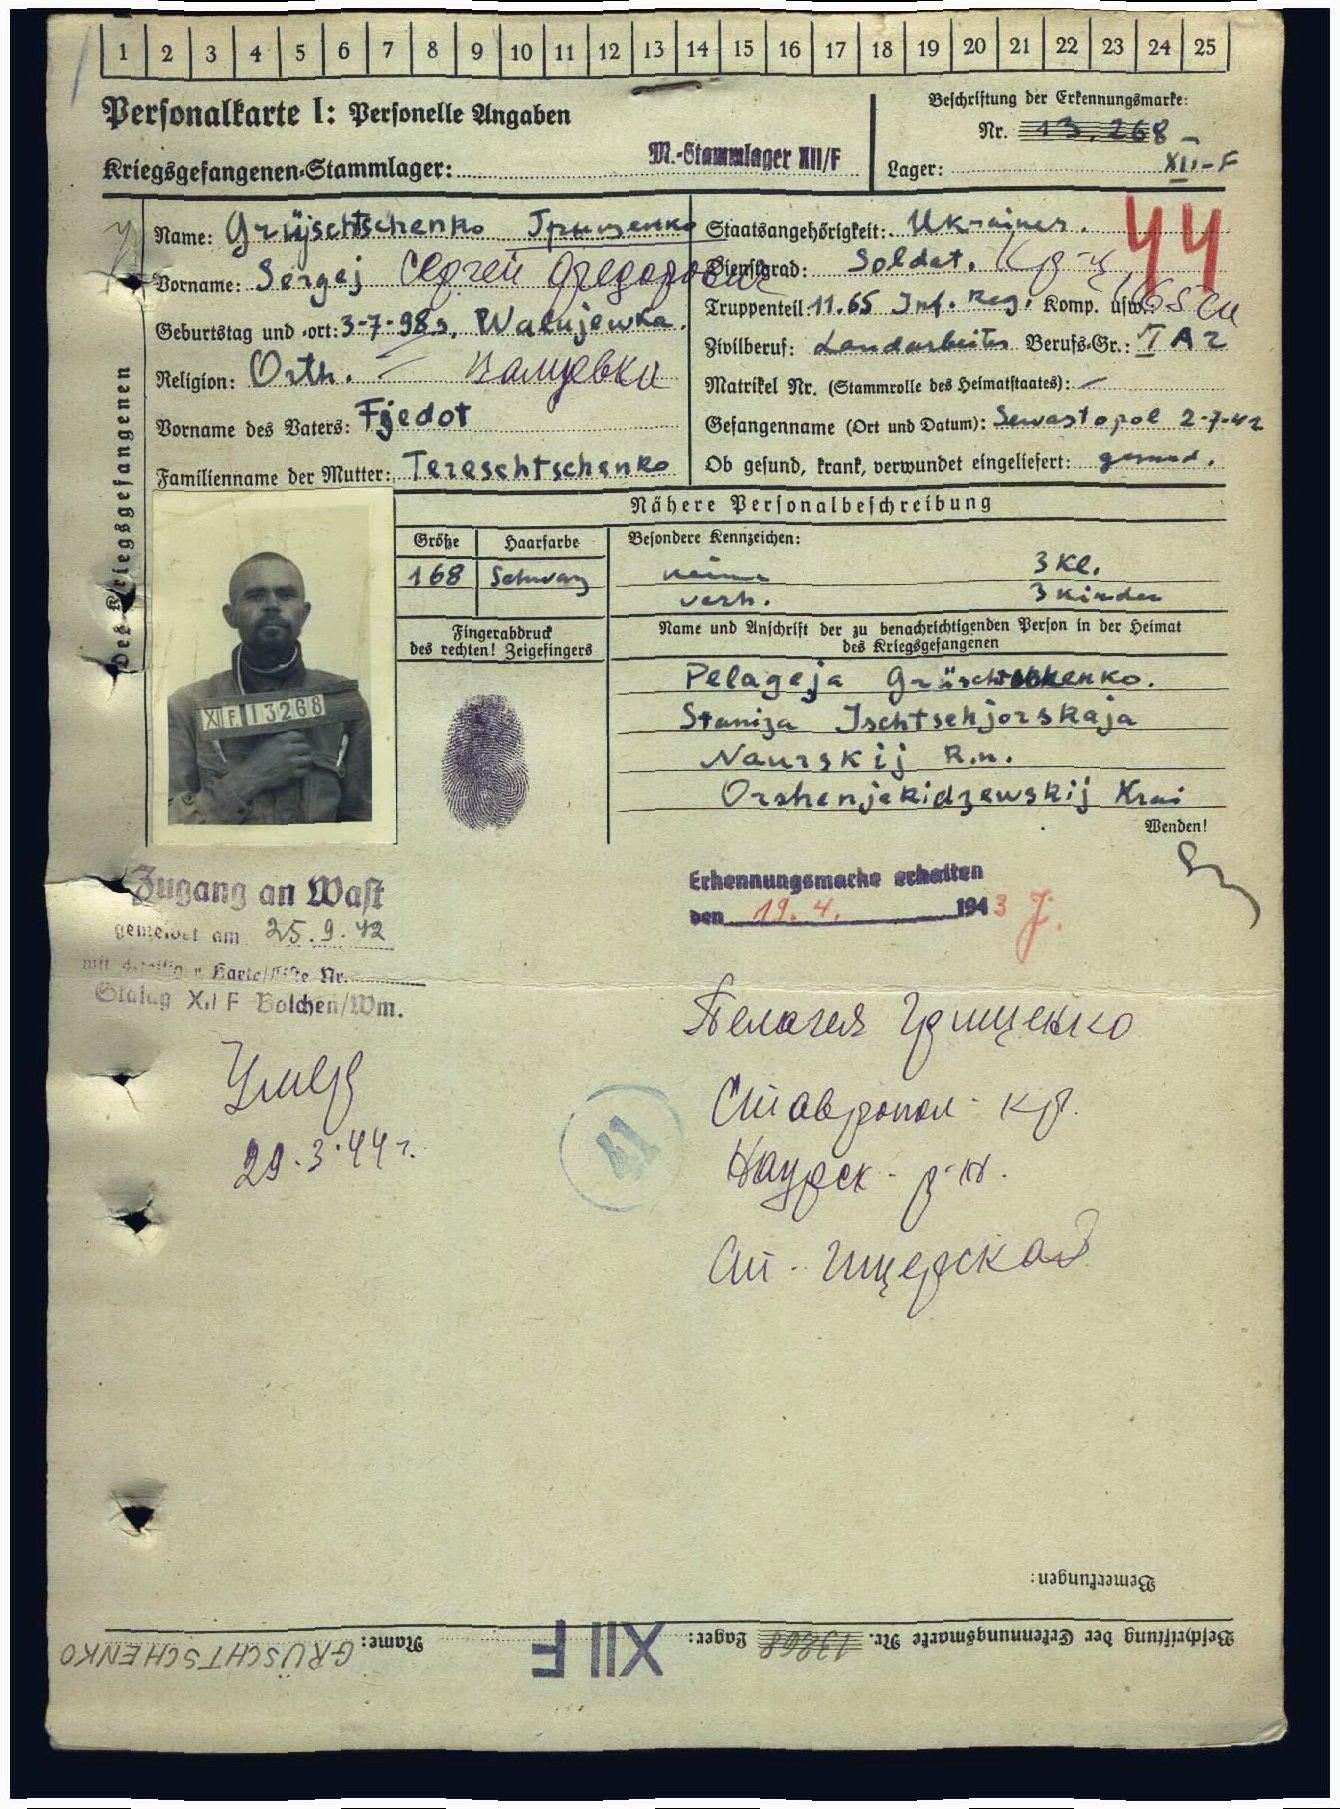 1 2 3 4 5 6 7 8 9 10 11 12 13 14 15 16 17 18 19 20 21 22 23 24 25
Personalkarte I: Personelle Angaben
Beschriftung der Erkennungsmarke:
Nr. 13.268
Kriegsgefangenen-Stammlager: M.-Stammlager XII/F
Lager: XII-F
Des Kriegsgefangenen
Name: Grüjschtschenko Грищенко
Vorname: Sergej Сергей Федорович
Geburtstag und -ort: 3-7-98 Walujewka.
Religion: Orth. – Валуевка
Vorname des Vaters: Fjedot
Familienname der Mutter: Tereschtschenko
Staatsangehörigkeit: Ukrainer.
44
Dienstgrad: Soldat. Кр-ц
Truppenteil: 11.65 Inf. Reg. Komp. usw.: 65 сп
Zivilberuf: Landarbeiter Berufs-Gr.: I A 2
Matrikel Nr. (Stammrolle des Heimatstaates): –
Gefangenname (Ort und Datum): Sewastopol 2-7-42
Ob gesund, krank, verwundet eingeliefert: gesund.
Nähere Personalbeschreibung
Größe Haarfarbe Besondere Kennzeichen:
168 Schwarz keine 3 Kl.
verh. 3 Kinder
Fingerabdruck
des rechten! Zeigefingers
Name und Anschrift der zu benachrichtigenden Person in der Heimat
des Kriegsgefangenen
XII F 13268
Pelageja Grüschtschenko.
Staniza Ischtschjorskaja
Naurskij R.n.
Orshenjekidzewskij Krai
Wenden!
Zugang an Wast
gemeldet am 25.9.42
Karte/Liste Nr.
Stalag XII F Bolchen/Wm.
Erkennungsmarke erhalten
den 19.4. 1943
Умер
29.3.44 г.
41
Пелагея Грищенко
Ставропол- кр.
Наурск- р-н.
Ст- Ищерская
Bemerkungen:
Beschriftung der Erkennungsmarke Nr. 13268 Lager: XII F Name: GRÜSCHTSCHENKO